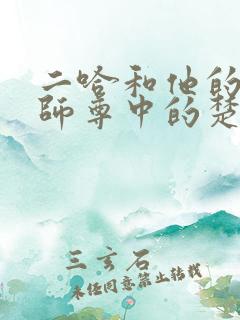 二哈和他的
師尊中的楚
三玄石
未经同意禁止转载